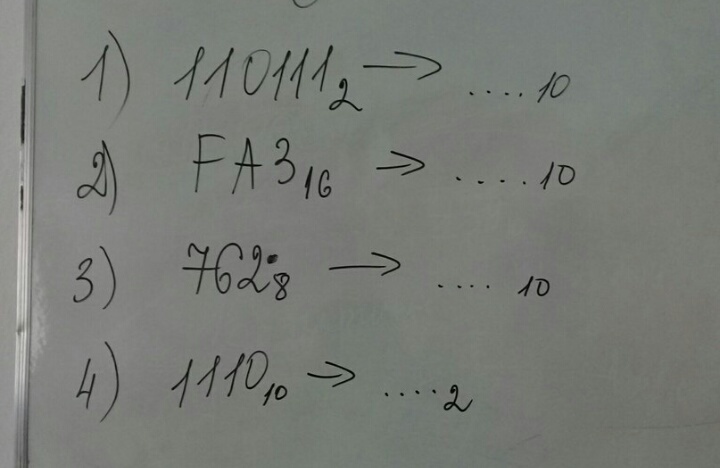 1) 110111₂ → ....₁₀
2) FA3₁₆ → ....₁₀
3) 762₈ → ....₁₀
4) 1110₁₀ → ....₂